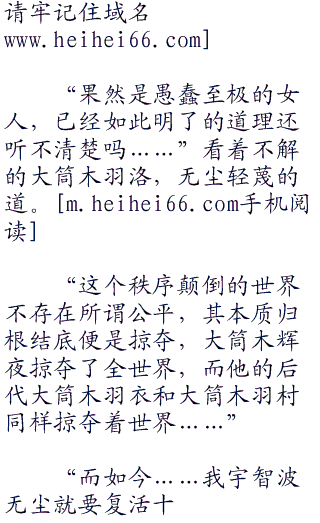 请牢记住域名
www.heihei66.com]
“果然是愚蠢至极的女
人，已经如此明了的道理还
听不清楚吗……”看着不解
的大筒木羽洛，无尘轻蔑的
道。[m.heihei66.com手机阅
读]
“这个秩序颠倒的世界
不存在所谓公平，其本质归
根结底便是掠夺，大筒木辉
夜掠夺了全世界，而他的后
代大筒木羽衣和大筒木羽村
同样掠夺着世界……”
“而如今……我宇智波
无尘就要复活十